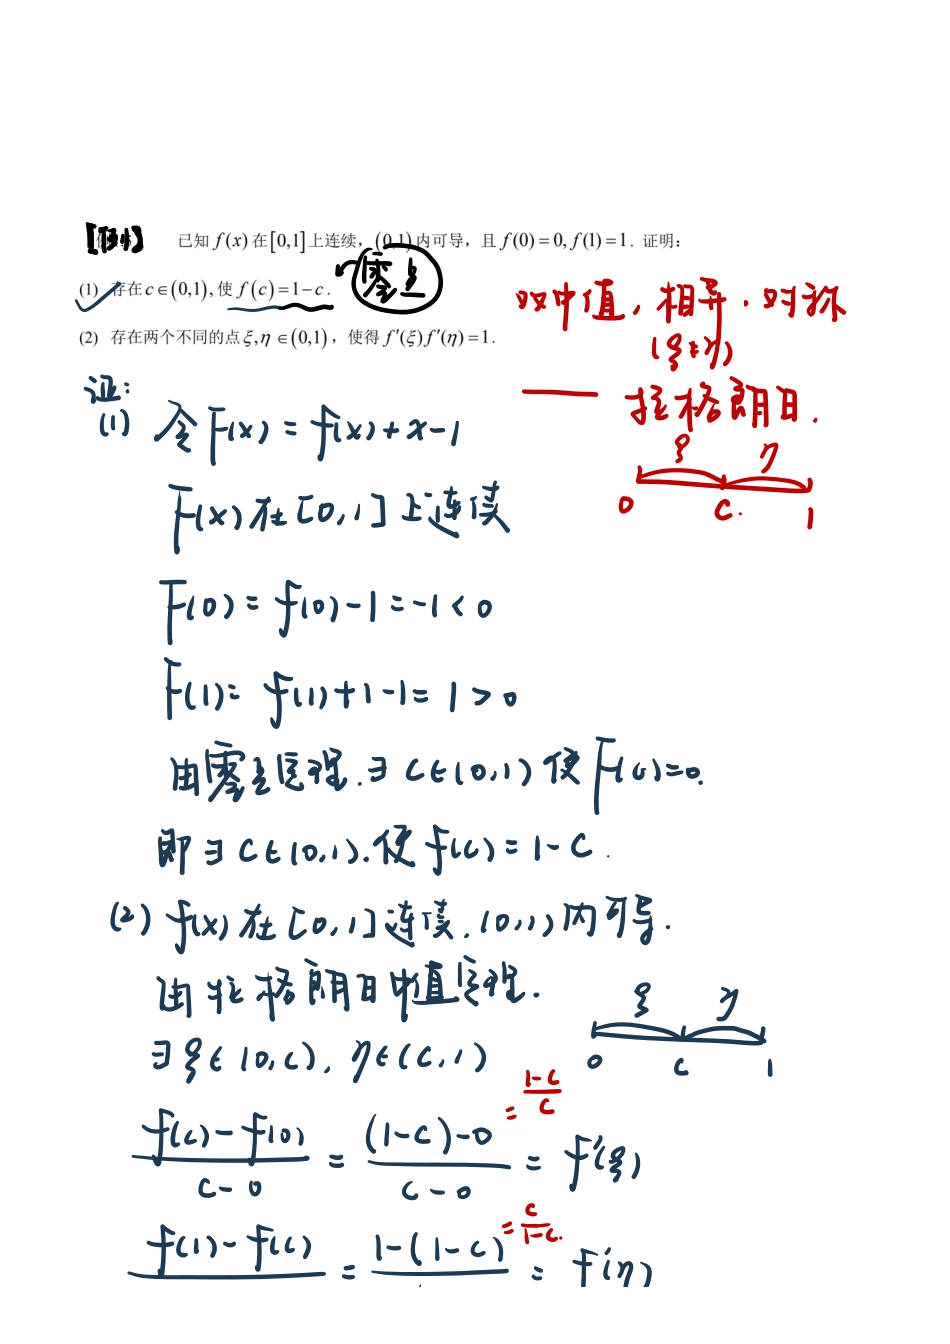 【例】 已知 f(x) 在[0,1]上连续，(0,1)内可导，且 f(0)=0, f(1)=1. 证明：
(1) 存在 c∈(0,1), 使 f(c)=1−c.
零点
(2) 存在两个不同的点 ξ,η∈(0,1)，使得 f′(ξ)f′(η)=1.
双中值，相异．对称
(ξ≠η)
—— 拉格朗日.
ξ η
0 c. 1
证:
(1) 令F(x)=f(x)+x-1
F(x)在[0,1]上连续
F(0)=f(0)-1=-1<0
F(1)=f(1)+1-1=1>0
由零点定理.∃C∈(0,1)使F(c)=0.
即∃C∈(0,1).使f(c)=1-C.
(2) f(x)在[0,1]连续.(0,1)内可导.
由拉格朗日中值定理.
ξ η
0 c 1
∃ξ∈(0,c), η∈(c,1)
\frac{f(c)-f(0)}{c-0}=\frac{(1-c)-0}{c-0}=f'(ξ)
=\frac{1-c}{c}
\frac{f(1)-f(c)}{}=\frac{1-(1-c)}{}=f'(η)
=\frac{c}{1-c}.